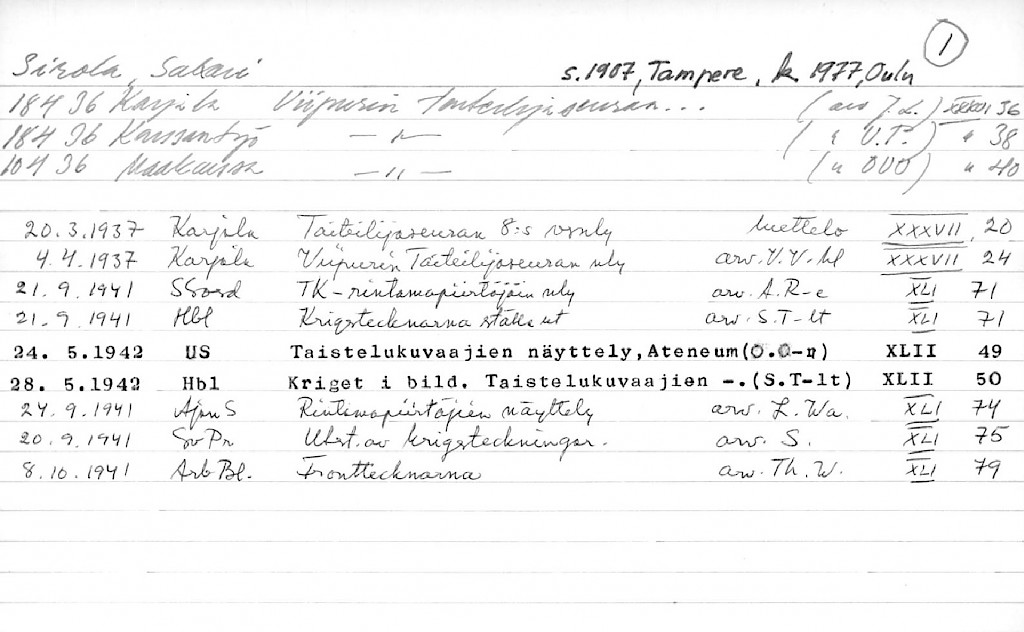 1
Sirola, Sakari s. 1907, Tampere, k. 1977, Oulu
18 4 36 Karjala Viipurin taiteilijaseuran... (arv J.L.) XXXVI 36
18 4 36 Kanssantyö —"— ( " V.T.) " 38
10 4 36 Maakansa —"— (" OVO) " 40
20.3.1937 Karjala Taiteilijaseuran 8:s vsnly luettelo XXXVII, 20
4.4.1937 Karjala Viipurin Taiteilijaseuran nly arv. V.V. hl XXXVII 24
21.9.1941 SSosd TK-rintamapiirtäjäin nly arv. A.R-e XLI 71
21.9.1941 Hbl Krigstecknarna ställa ut arv. S.T-lt XLI 71
24. 5.1942 US Taistelukuvaajien näyttely,Ateneum(O.O-n) XLII 49
28. 5.1942 Hbl Kriget i bild. Taistelukuvaajien -.(S.T-lt) XLII 50
24.9.1941 Ajan S Rintamapiirtäjien näyttely arv. L. Wa. XLI 74
20.9.1941 Sv Pr Utst. av krigsteckningar. arv. S. XLI 75
8.10.1941 Arb Bl. Fronttecknarna arv. Th. W. XLI 79